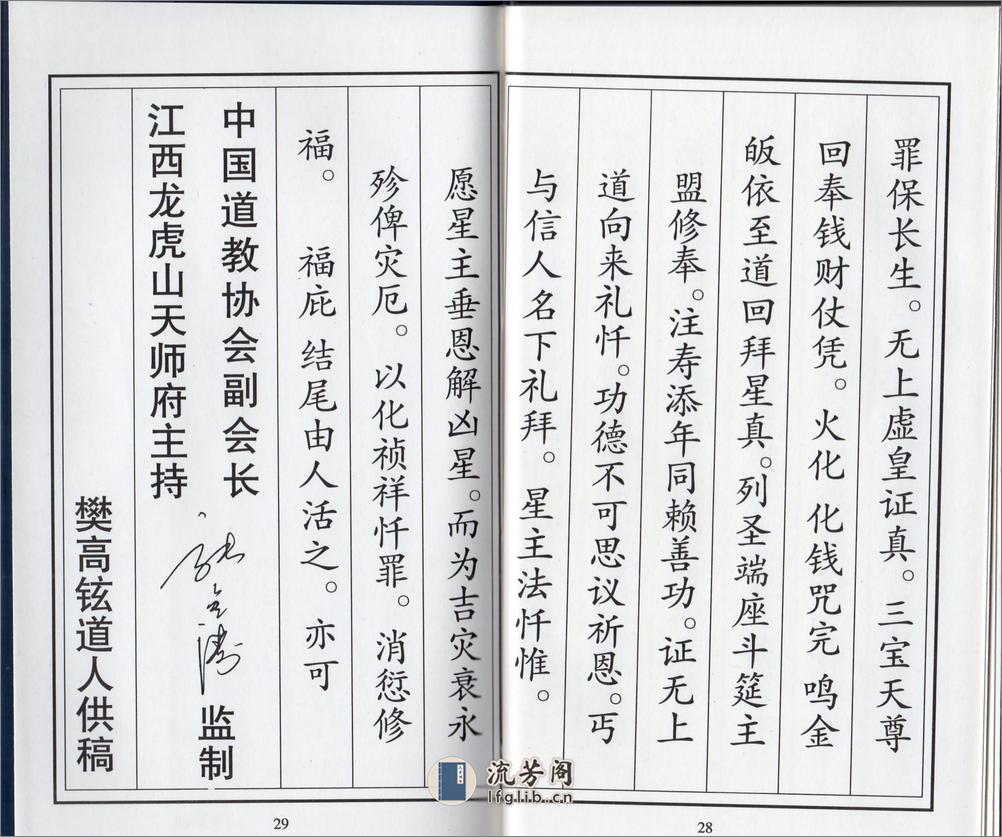 罪保长生。无上虚皇证真。三宝天尊
回奉钱财仗凭。火化 化钱咒完 鸣金
皈依至道回拜星真。列圣端座斗筵主
盟修奉。注寿添年同赖善功。证无上
道向来礼忏。功德不可思议祈恩。丐
与信人名下礼拜。星主法忏惟。
愿星主垂恩解凶星。而为吉灾衰永
殄俾灾厄。以化祯祥忏罪。消愆修
福。 福庇 结尾由人活之。亦可
中国道教协会副会长
江西龙虎山天师府主持
张金涛
监制
樊高铉道人供稿
28
29
流芳阁
lfglib.cn